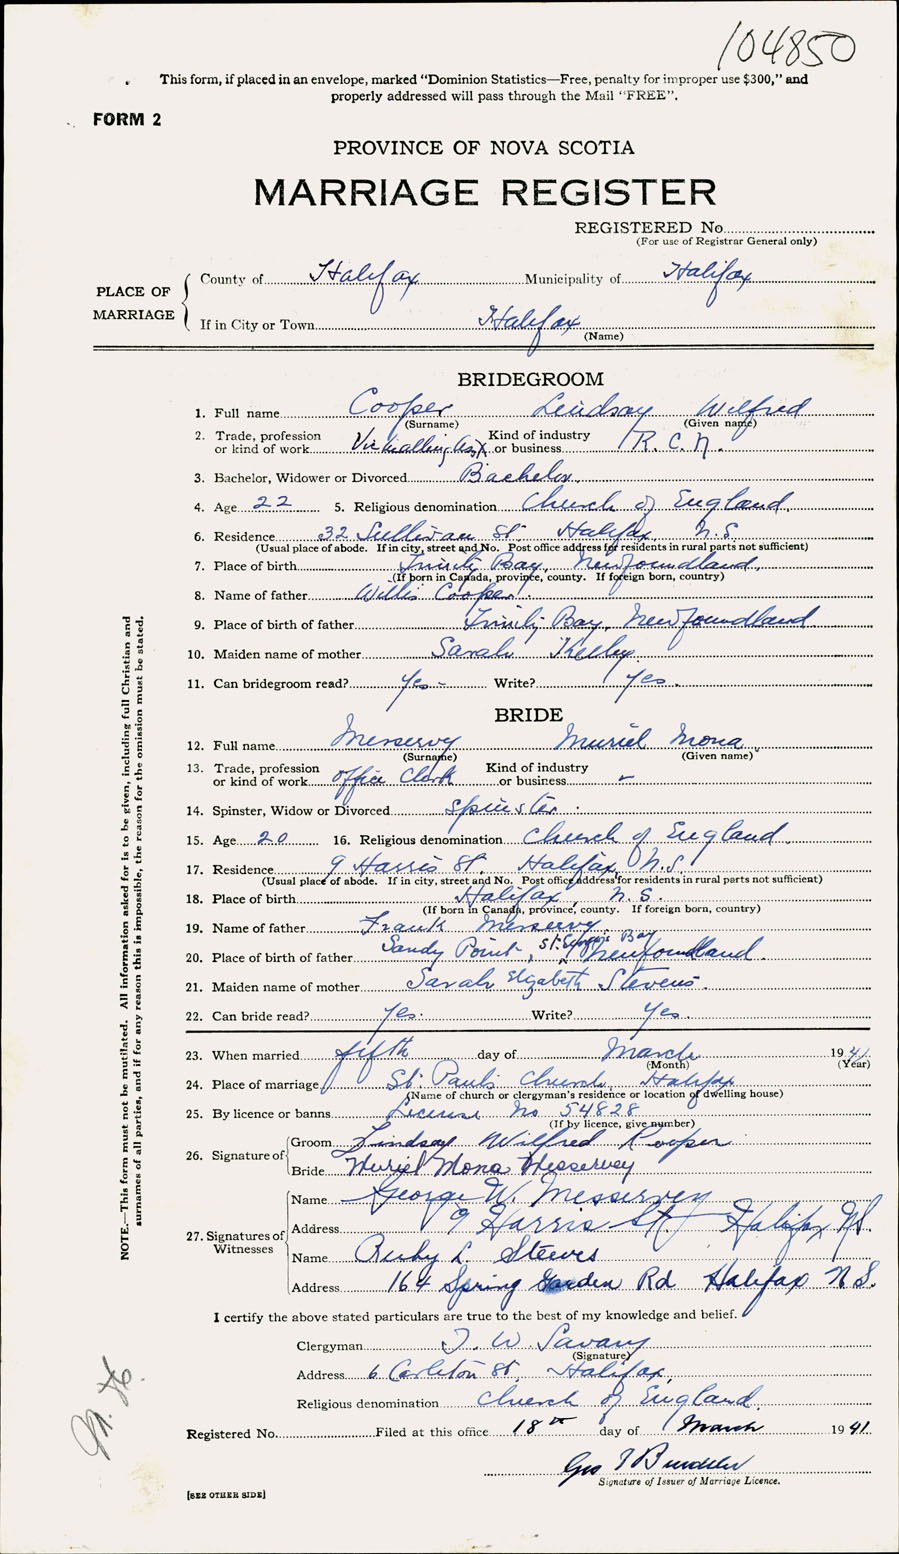 104850
This form, if placed in an envelope, marked "Dominion Statistics—Free, penalty for improper use $300," and
properly addressed will pass through the Mail "FREE".
FORM 2
PROVINCE OF NOVA SCOTIA
MARRIAGE REGISTER
REGISTERED No.
(For use of Registrar General only)
PLACE OF MARRIAGE
County of Halifax Municipality of Halifax
If in City or Town Halifax
(Name)
BRIDEGROOM
1. Full name Cooper Lindsay Wilfred
(Surname) (Given name)
2. Trade, profession or kind of work Victualling Asst Kind of industry or business R.C.N.
3. Bachelor, Widower or Divorced Bachelor
4. Age 22 5. Religious denomination Church of England
6. Residence 32 Sullivan St. Halifax, N.S.
(Usual place of abode. If in city, street and No. Post office address for residents in rural parts not sufficient)
7. Place of birth Trinity Bay, Newfoundland.
(If born in Canada, province, county. If foreign born, country)
8. Name of father Willis Cooper.
9. Place of birth of father Trinity Bay, Newfoundland
10. Maiden name of mother Sarah Kelley.
11. Can bridegroom read? Yes - Write? Yes.
BRIDE
12. Full name Messervy Muriel Mona
(Surname) (Given name)
13. Trade, profession or kind of work Office Clerk Kind of industry or business -
14. Spinster, Widow or Divorced Spinster.
15. Age 20 16. Religious denomination Church of England.
17. Residence 9 Harris St. Halifax, N.S.
(Usual place of abode. If in city, street and No. Post office address for residents in rural parts not sufficient)
18. Place of birth Halifax, N.S.
(If born in Canada, province, county. If foreign born, country)
19. Name of father Frank Messervy.
20. Place of birth of father Sandy Point, St. George's Bay Newfoundland.
21. Maiden name of mother Sarah Elizabeth Stevens.
22. Can bride read? Yes. Write? Yes.
23. When married fifth day of March 1941
(Month) (Year)
24. Place of marriage St. Paul's Church, Halifax
(Name of church or clergyman's residence or location of dwelling house)
25. By licence or banns License No 54828
(If by licence, give number)
26. Signature of
Groom Lindsay Wilfred Cooper
Bride Muriel Mona Messervey
27. Signatures of Witnesses
Name George W. Messervey
Address 9 Harris St. Halifax N.S.
Name Ruby L. Steeves
Address 164 Spring Garden Rd Halifax N.S.
I certify the above stated particulars are true to the best of my knowledge and belief.
Clergyman T. W. Savary
(Signature)
Address 6 Carleton St, Halifax,
Religious denomination Church of England.
Registered No. Filed at this office 18th day of March 1941
Signature of Issuer of Marriage Licence.
[SEE OTHER SIDE]
NOTE.—This form must not be mutilated. All information asked for is to be given, including full Christian and
surnames of all parties, and if for any reason this is impossible, the reason for the omission must be stated.